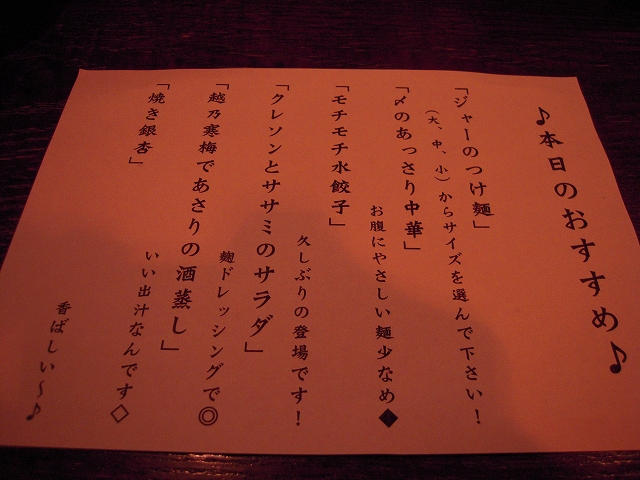 ♪本日のおすすめ♪
「ジャーのつけ麺」
(大、中、小)からサイズを選んで下さい！
「〆のあっさり中華」
お腹にやさしい麺少なめ◆
「モチモチ水餃子」
久しぶりの登場です！
「クレソンとササミのサラダ」
麹ドレッシングで◎
「越乃寒梅であさりの酒蒸し」
いい出汁なんです◇
「焼き銀杏」
香ばしい～♪